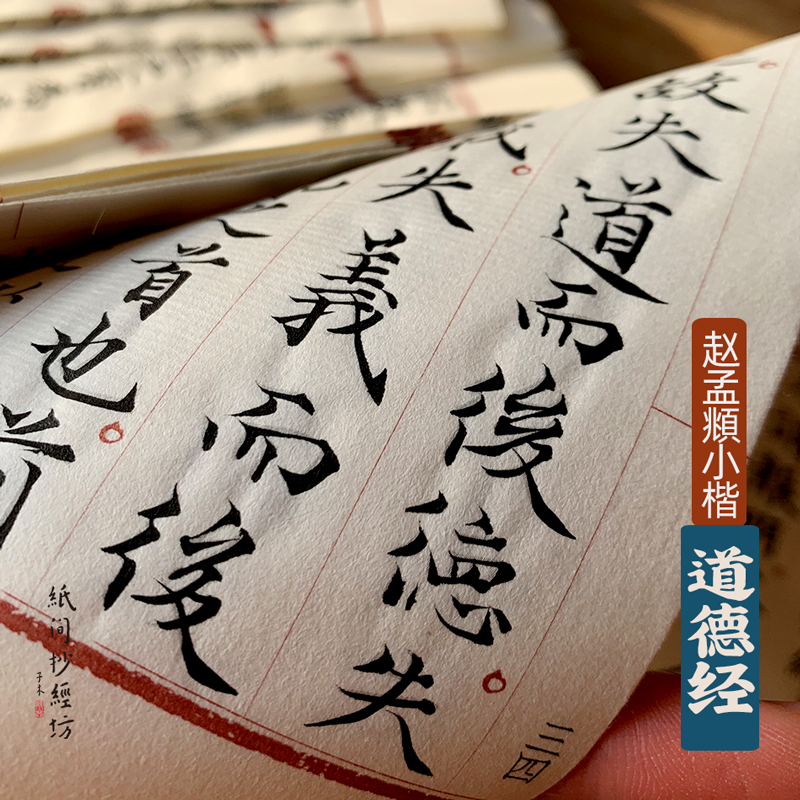 故失道而後德。失
義。失義而後
之首也。前
三四
赵孟頫小楷
道德经
紙间抄經坊
子木